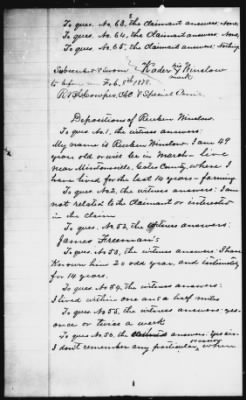 To ques. No. 63, the claimant answers, None.
To ques. No. 64, the Claimant answers, None.
To ques. No. 65, the Claimant answers, Nothing.
his
Kader Winslow
mark
Subscribed & Sworn
to before Feb. 8th 1878.
Special Com'r
Depositions of Reuben Winslow.
To ques. No. 1, the witness answers:
My name is Reuben Winslow. I am 49
years old or will be in March - live
near Mintonsville, Gates County, where I
have lived for the last 14 years - farming
To ques. No. 2, the witness answers: I am
not related to the Claimant or interested
in the claim
To ques. No. 52, the witness answers:
James Freeman's
To ques. No. 53, the witness answers: I have
Known him 20 odd years, and intimately
for 14 years.
To ques. No. 54, the witness answers:
I lived within one and a half miles
To ques No. 55, the witness answers: yes -
once or twice a week
To ques. No. 56, the witness answers: Yes sir.
I don't remember any particular when